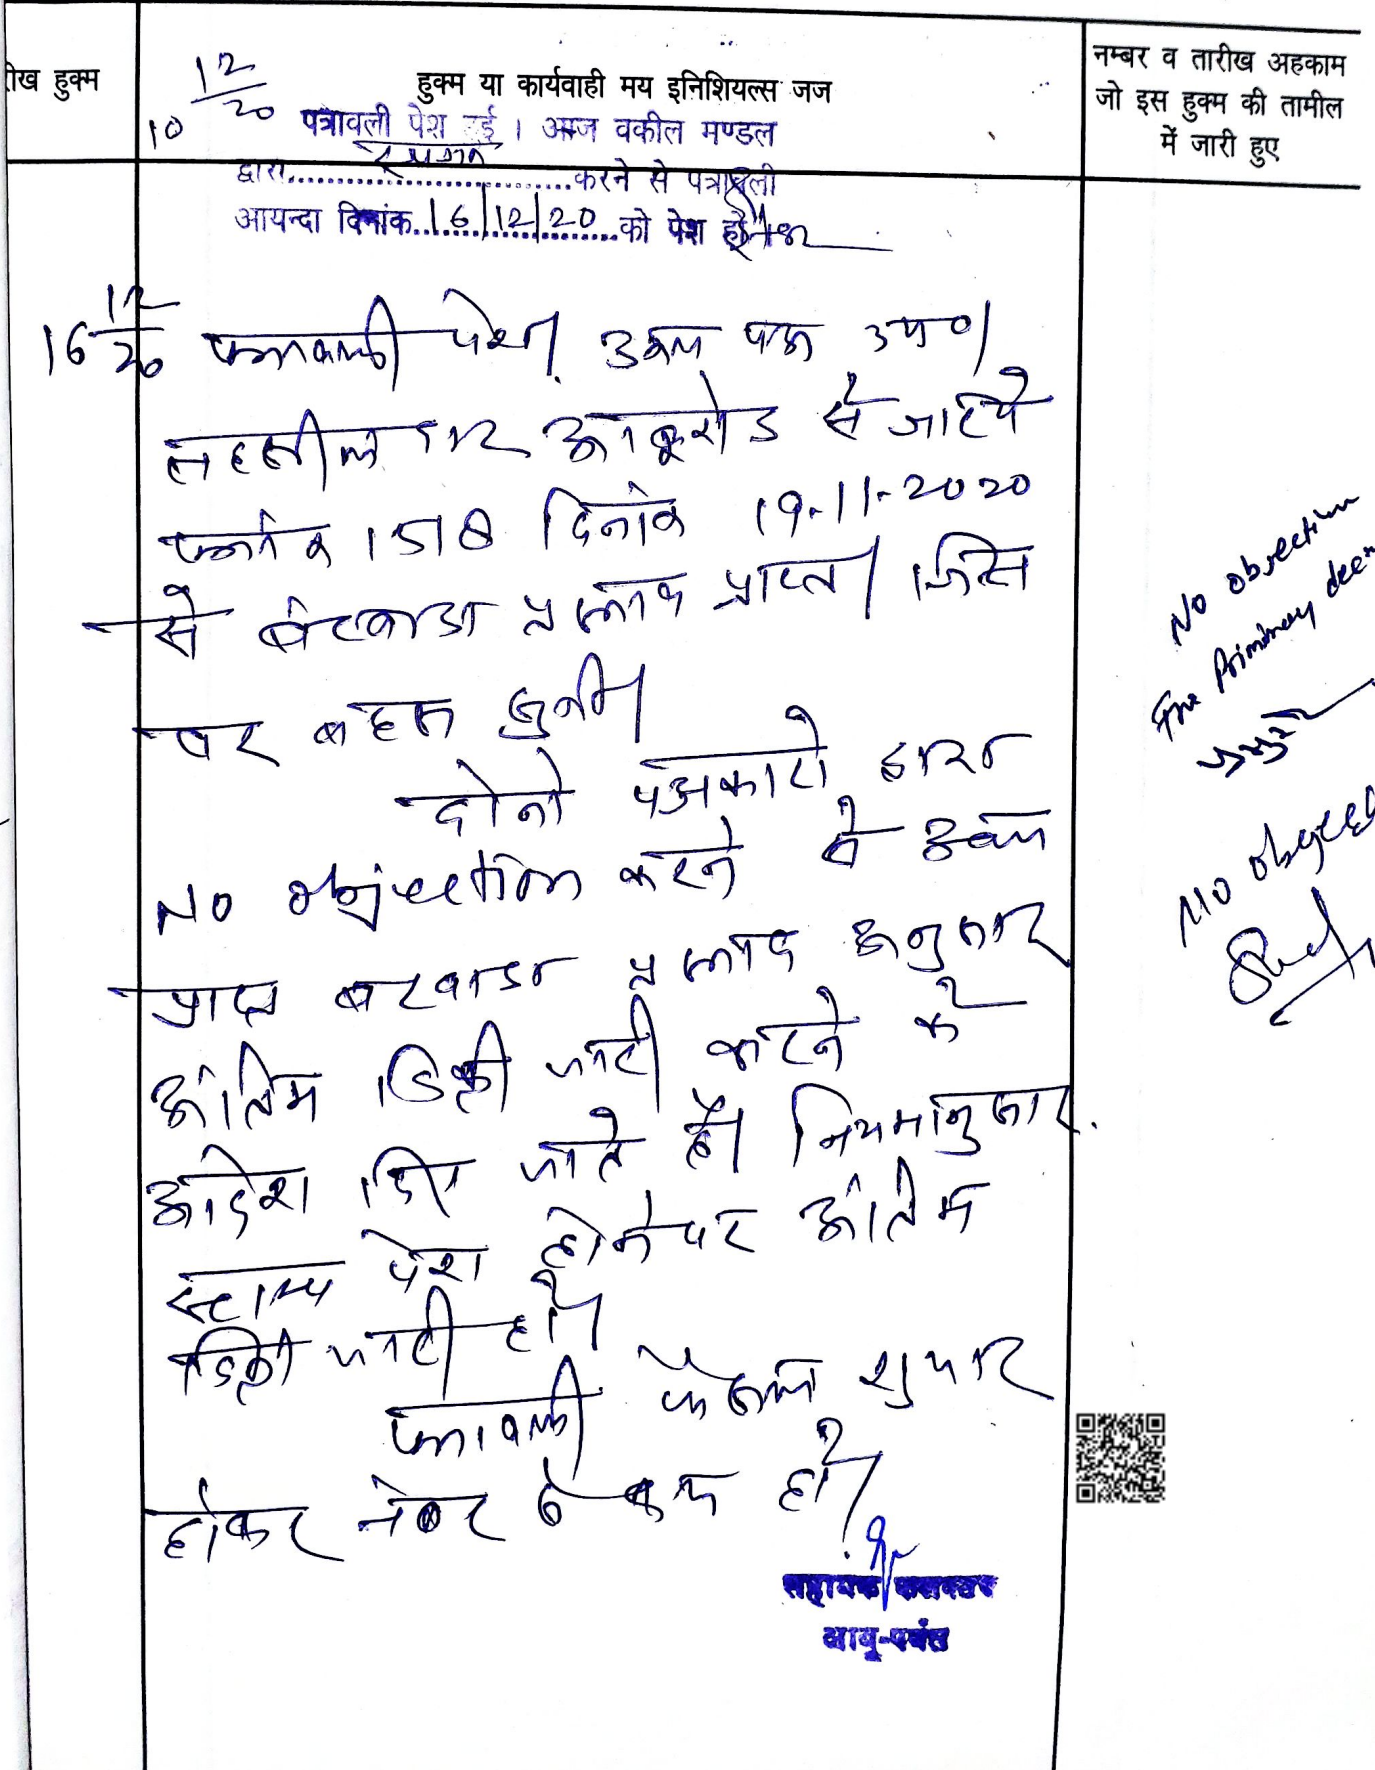 रीख हुक्म
हुक्म या कार्यवाही मय इनिशियल्स जज
नम्बर व तारीख अहकाम
जो इस हुक्म की तामील
में जारी हुए
10 12/20
पत्रावली पेश हुई । आज वकील मण्डल
द्वारा..............................करने से पत्रावली
आयन्दा दिनांक..16/12/20..को पेश हो
16 12/20 पत्रावली पेश। उभय पक्ष उप०।
तहसीलदार आबूरोड से जरिये
पत्रांक 1518 दिनांक 19-11-2020
से बंटवाडा प्रस्ताव प्राप्त। जिस
पर बहस सुनी।
दोनो पक्षकारो द्वारा
No objection करने से उक्त
प्राप्त बटवाडा प्रस्ताव अनुसार
अंतिम डिक्री जारी करने के
आदेश दिए जाते है। नियमानुसार.
स्टाम्प पेश होने पर अंतिम
डिक्री जारी हो।
पत्रावली फैसल शुमार
होकर नंबर से कम हो।
सहायक कलक्टर
आबू-पर्वत
No objection
Primary
No